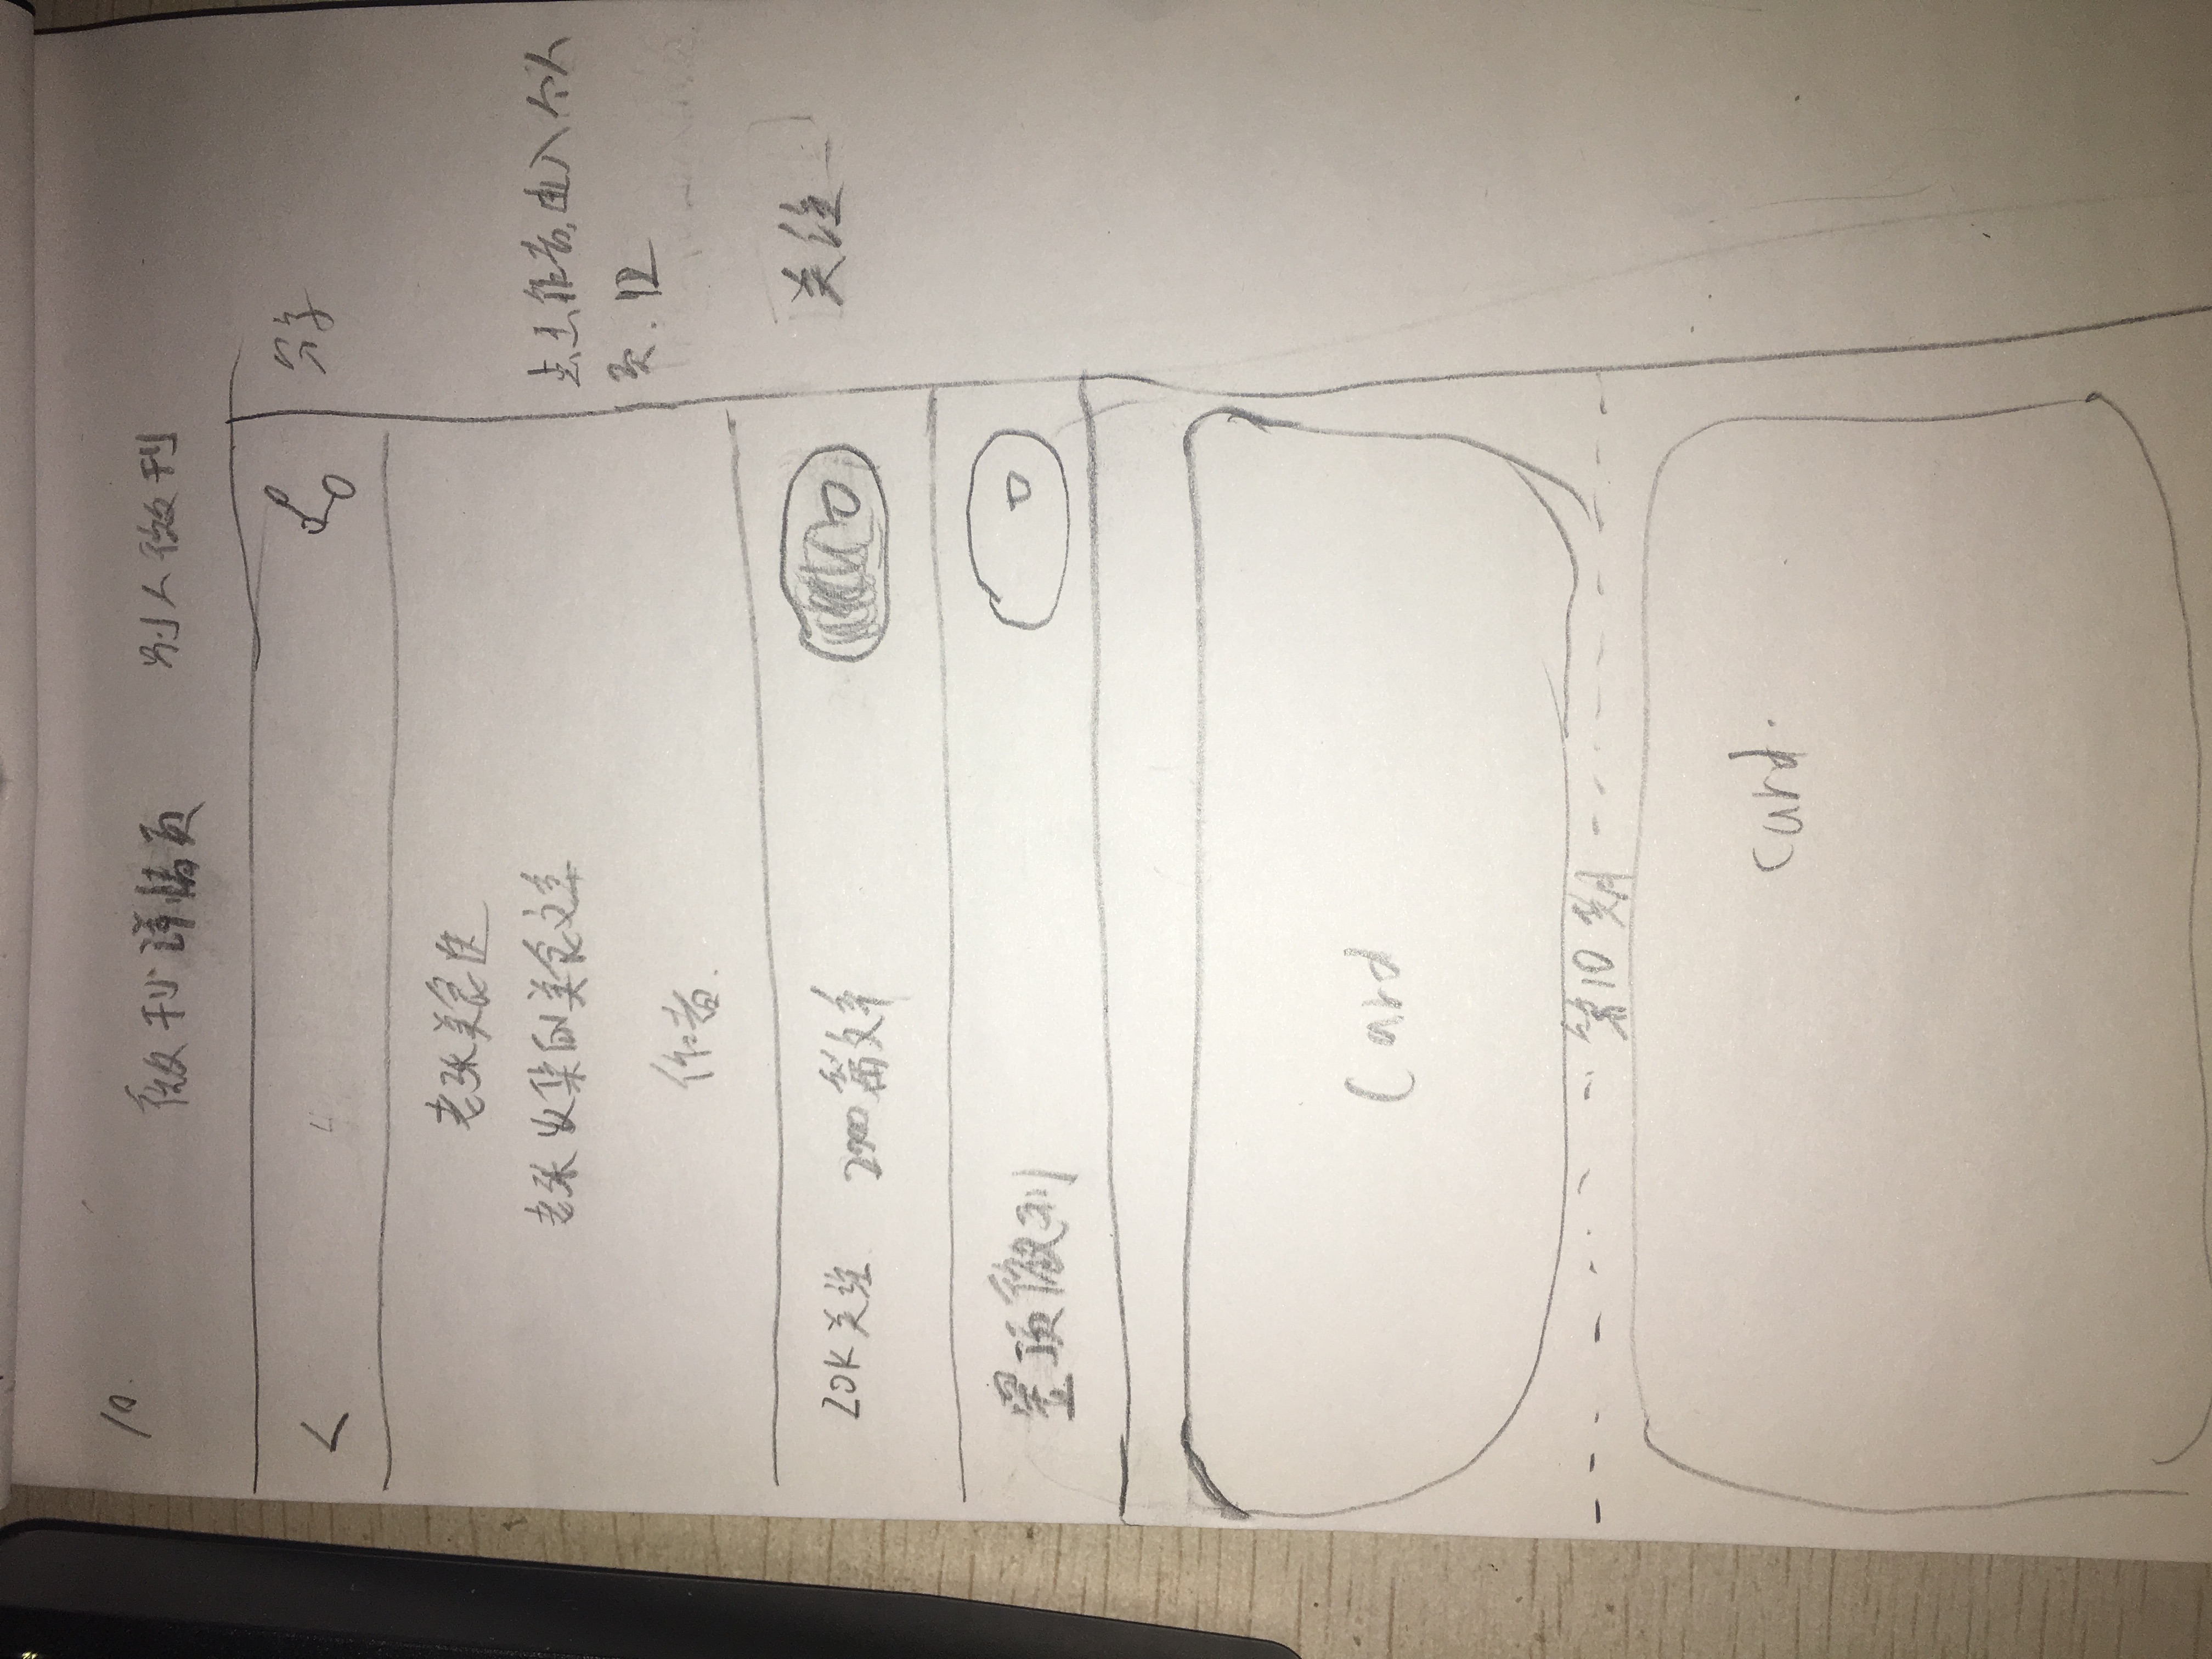 10.
微刊详情页 别人微刊
<
分享
老张美食
老张收集的美食文章
点击作者,进入个人
页. 12
作者.
20K关注 2000篇文章
关注
置顶微刊
Card
第10期
Card.